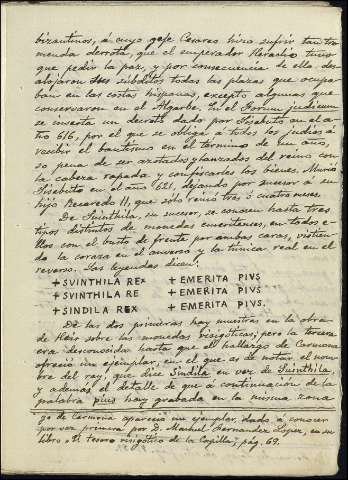 bizantinos, á cuyo gefe Cesareo hizo sufrir tan tre-
menda derrota, que el emperador Heraclio tuvo
que pedir la paz, y por consecuencia de ella desa-
lojaron sus subditos todas las plazas que ocupa-
ban en las costas hispanas, excepto algunas que
conservaron en el Algarbe. En el Forum judicum
se inserta un decreto dado por Sisebuto en el a-
ño 616, por el que se obliga á todos los judios á
recibir el bautismo en el término de un año,
so pena de ser azotados y lanzados del reino con
la cabeza rapada y confiscarles los bienes. Murió
Sisebuto en el año 621, dejando por sucesor a su
hijo Recaredo II, que sólo reinó tres ó cuatro meses.
De Suinthila, su sucesor, se conocen hasta tres
tipos distintos de monedas emeritenses, en todos e-
llos con el busto de frente por ambas caras, vistien-
do la coraza en el anverso y la túnica real en el
reverso. Las leyendas dicen:
+SVINTHILA REX +EMERITA PIVS
+SVINTHILA RE +EMERITA PIVS
+SINDILA REX +EMERITA PIVS.
De las dos primeras hay muestras en la obra
de Heiss sobre las monedas visigóticas; pero la tercera
era desconocida hasta que el hallazgo de Carmona
ofreció un ejemplar, en el que es de notar el nom-
bre del rey, que dice Sindila en vez de Suinthila,
y además el detalle de que á continuación de la
palabra pius hay grabada en la misma zona
go de Carmona apareció un ejemplar, dado á conocer
por vez primera por D. Manuel Fernandez Lopez, en su
libro "El tesoro visigótico de la Capilla", pág. 69.